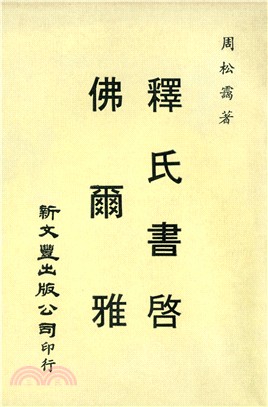 周松靄著
釋氏書啓
佛爾雅
新文豐出版公司印行
三民